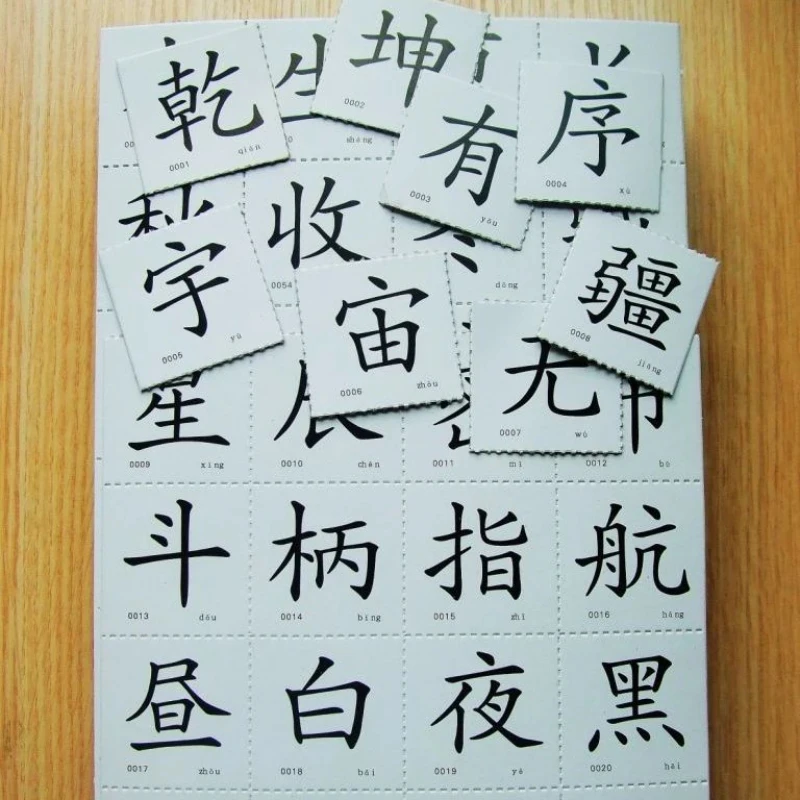 乾 0001 qián
坤 0002
有 0003 yǒu
序 0004 xù
生 shēng
收 0054
dōng
宇 0005 yǔ
宙 0006 zhòu
无 0007 wú
疆 0008 jiāng
星 0009 xīng
辰 0010 chén
密 0011 mì
布 0012 bù
斗 0013 dǒu
柄 0014 bǐng
指 0015 zhǐ
航 0016 háng
昼 0017 zhòu
白 0018 bái
夜 0019 yè
黑 0020 hēi